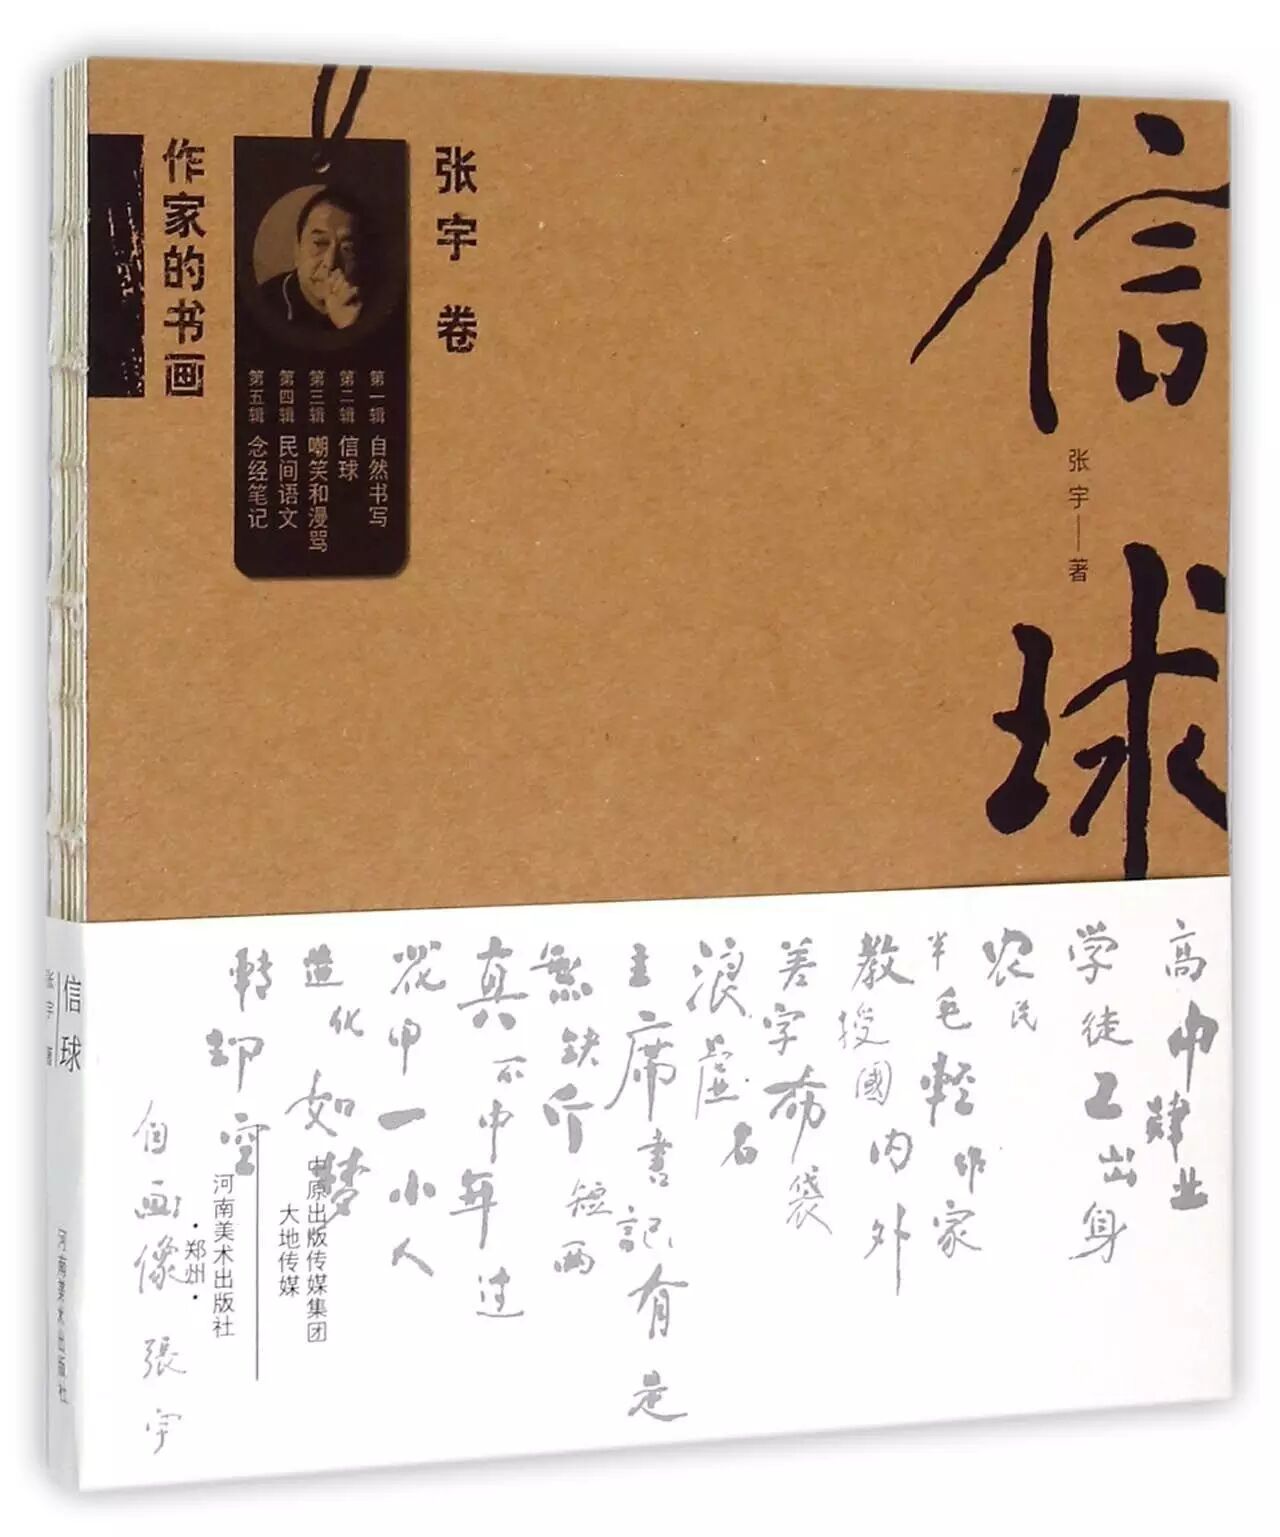 信球
张宇——著
张宇 卷
第一辑 自然书写
第二辑 信球
第三辑 嘲笑和漫骂
第四辑 民间语文
第五辑 念经笔记
作家的书画
高中肄业
学徒工出身
农民
半毛輕作家
教授國内外
善字布袋
浪虚名
主席書記有是
無缺斤短两
真不中年过
花甲一小人
造化如梦
轉却空
自画像 張宇
中原出版传媒集团
大地传媒
河南美术出版社
·郑州·
信球
张宇 著
河南美术出版社